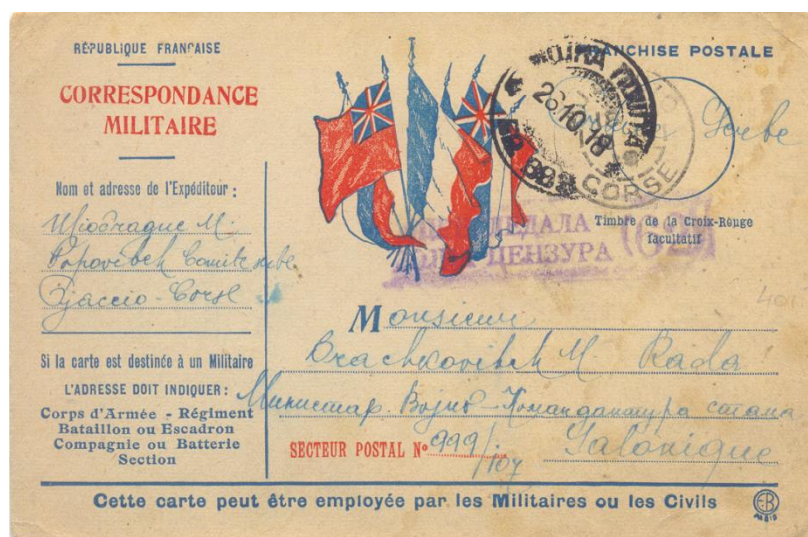 RÉPUBLIQUE FRANÇAISE
CORRESPONDANCE
MILITAIRE
Nom et adresse de l'Expéditeur :
M.
Popovitch Comité serbe
Ajaccio - Corse
Si la carte est destinée à un Militaire
L'ADRESSE DOIT INDIQUER :
Corps d'Armée - Régiment
Bataillon ou Escadron
Compagnie ou Batterie
Section
FRANCHISE POSTALE
Serbe
ПОШТА
26.10.18
999
CORSE
Timbre de la Croix-Rouge
facultatif
ЦЕНЗУРА
Monsieur
Brachkovitch M. Rada
Министар. Војно - Командантура стана
SECTEUR POSTAL Nº 999/107 Salonique
401
Cette carte peut être employée par les Militaires ou les Civils
EB
PARIS